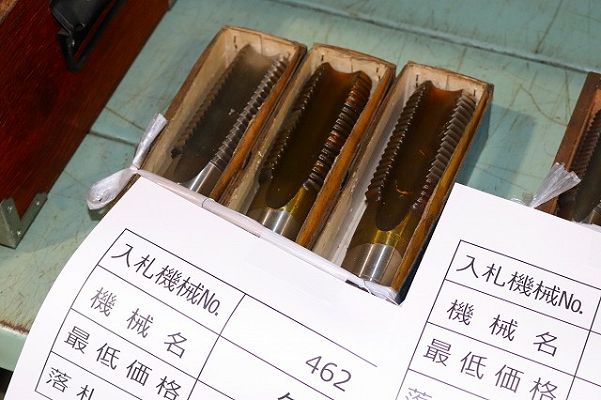 入札機械No. 462
機械名
最低価格
落札
入札機械No.
機械名
最低価格
落札